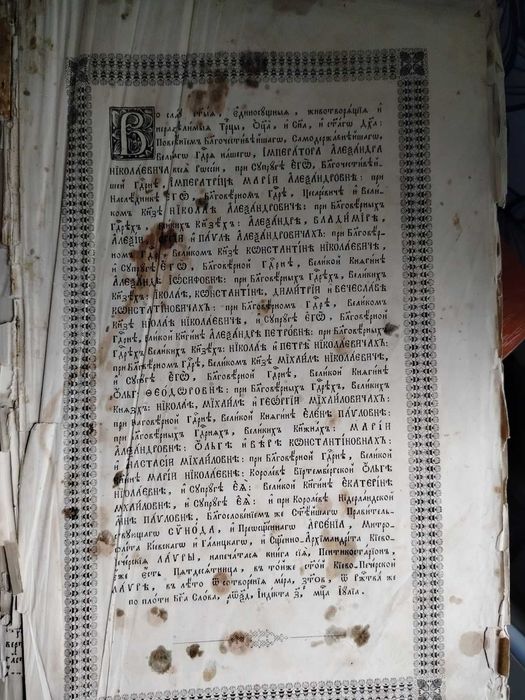 Во сла́вꙋ ст҃ы́ѧ, є҆диносꙋ́щныѧ, животворѧ́щїѧ и҆
нераздѣ́лимыѧ Трⷪ҇цы, Ѻ҆ц҃а̀, и҆ Сн҃а, и҆ ст҃а́гѡ Дх҃а:
Повелѣ́нїемъ Бл҃гочести́вѣйшагѡ, Самодержа́внѣйшагѡ,
Вели́кагѡ Гдⷭ҇рѧ на́шегѡ, І҆МПЕРА́ТОРА А҆ЛЕѮА́НДРА
НІКОЛА́ЕВИЧА всеѧ̀ Рѡссі́и, при Сꙋпрꙋ́гѣ Є҆ГѠ̀, Бл҃гочести́вѣй-
шей Гдⷭ҇рнѣ, І҆МПЕРАТРИ́ЦѢ МАРІ́И А҆ЛЕѮА́НДРОВНѢ: при
Наслѣ́дникѣ Є҆ГѠ̀, Бл҃говѣ́рномъ Гдⷭ҇рѣ, Цесаре́вичѣ и҆ Вели́-
комъ Кн҃зѣ НІКОЛА́Ѣ А҆ЛЕѮА́НДРОВИЧѢ: при Бл҃говѣ́рныхъ
Гдⷭ҇рѣхъ, Вели́кихъ Кн҃зѣхъ: А҆ЛЕѮА́НДРѢ, ВЛАДИ́МІРѢ,
А҆ЛЕѮІ́И и҆ ПА́ѴЛѢ А҆ЛЕѮА́НДРОВИЧАХЪ: при Бл҃говѣ́р-
номъ Гдⷭ҇рѣ, Вели́комъ Кн҃зѣ КѠНСТАНТІ́НѢ НІКОЛА́ЕВИЧѢ,
и҆ Сꙋпрꙋ́гѣ Є҆ГѠ̀, Бл҃говѣ́рной Гдⷭ҇рнѣ, Вели́кой Кнѧги́нѣ
А҆ЛЕѮА́НДРѢ І҆Ѡ́СИФОВНѢ: при Бл҃говѣ́рныхъ Гдⷭ҇рѣхъ, Вели́кихъ
Кн҃зѣхъ: НІКОЛА́Ѣ, КѠНСТАНТІ́НѢ, ДИМИ́ТРІИ и҆ ВЕЧЕСЛА́ВѢ
КѠНСТАНТІ́НОВИЧАХЪ: при Бл҃говѣ́рномъ Гдⷭ҇рѣ, Вели́комъ
Кн҃зѣ НІКОЛА́Ѣ НІКОЛА́ЕВИЧѢ, и҆ Сꙋпрꙋ́гѣ Є҆ГѠ̀, Бл҃говѣ́рной
Гдⷭ҇рнѣ, Вели́кой Кнѧги́нѣ А҆ЛЕѮА́НДРѢ ПЕТРО́ВНѢ: при Бл҃говѣ́рныхъ
Гдⷭ҇рѣхъ, Вели́кихъ Кн҃зѣхъ: НІКОЛА́Ѣ и҆ ПЕТРѢ̀ НІКОЛА́ЕВИЧАХЪ:
при Бл҃говѣ́рномъ Гдⷭ҇рѣ, Вели́комъ Кн҃зѣ МІХАИ́ЛѢ НІКОЛА́ЕВИЧѢ,
и҆ Сꙋпрꙋ́гѣ Є҆ГѠ̀, Бл҃говѣ́рной Гдⷭ҇рнѣ, Вели́кой Кнѧги́нѣ
О҆́ЛЬГѢ ѲЕОДѠ́РОВНѢ: при Бл҃говѣ́рныхъ Гдⷭ҇рѣхъ, Вели́кихъ
Кнѧзѣ́хъ: НІКОЛА́Ѣ, МІХАИ́ЛѢ и҆ ГЕѠ́РГІИ МІХАИ́ЛОВИЧАХЪ:
при Бл҃говѣ́рной Гдⷭ҇рнѣ, Вели́кой Кнѧги́нѣ Є҆ЛЕ́НѢ ПА́ѴЛОВНѢ:
при Бл҃говѣ́рныхъ Гдⷭ҇рнѧхъ, Вели́кихъ Кнѧжна́хъ: МАРІ́И
А҆ЛЕѮА́НДРОВНѢ: О҆́ЛЬГѢ и҆ ВѢ́РѢ КѠНСТАНТІ́НОВНАХЪ:
и҆ А҆НАСТАСІ́И МІХАИ́ЛОВНѢ: при Бл҃говѣ́рной Гдⷭ҇рнѣ, Вели́кой
Кнѧги́нѣ МАРІ́И НІКОЛА́ЕВНѢ: Короле́вѣ Вїртембе́ргской О҆́ЛЬГѢ
НІКОЛА́ЕВНѢ, и҆ Сꙋпрꙋ́гѣ Є҆Ѧ̀: Вели́кой Кнѧги́нѣ Є҆КАТЕРІ́НѢ
МІХАИ́ЛОВНѢ, и҆ Сꙋпрꙋ́гѣ Є҆Ѧ̀: и҆ при Короле́вѣ Нїдерла́ндской
А҆́ННѢ ПА́ѴЛОВНѢ, Бл҃гослове́нїемъ же Ст҃ѣ́йшагѡ Прави́тель-
ствꙋющагѡ СѴНО́ДА, и҆ Преѡсщ҃е́ннагѡ А҆РСЕ́НІА, Митро-
поли́та Кі́евскагѡ и҆ Га́лицкагѡ, и҆ Сщ҃е́нно-А҆рхїмандрі́та Кі́ево-
Пече́рскїѧ ЛА́ѴРЫ, напеча́тасѧ кни́га сїѧ̀, Пентикоста́рїѡнъ,
є҆́же є҆́сть Пѧтдесѧ́тница, въ то́йже ст҃о́й Кі́ево-Пече́рской
ЛА́ѴРѢ, въ лѣ́то ѿ сотворе́нїѧ мі́ра, ѿ Рⷤ҇тва́ же
по пло́ти Бг҃а Сло́ва, І҆ндїкта мцⷭ҇а І҆ꙋ́лїа.